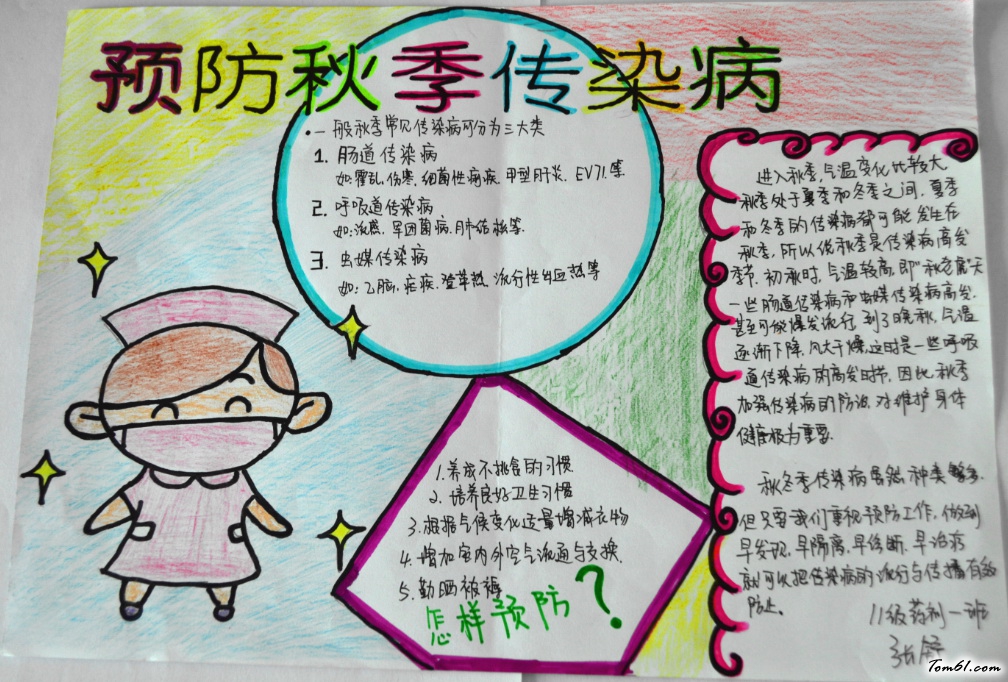 预防秋季传染病
·一般秋季常见传染病可分为三大类
1. 肠道传染病
如:霍乱,伤寒,细菌性痢疾,甲型肝炎,EV71.等
2. 呼吸道传染病
如:流感,军团菌病,肺结核等.
3. 虫媒传染病
如:乙脑,疟疾,登革热,流行性出血热等
1.养成不挑食的习惯
2.培养良好卫生习惯
3.根据气候变化适量增减衣物
4.增加室内外空气流通与交换.
5.勤晒被褥
怎样预防?
进入秋季,气温变化比较大
秋季处于夏季和冬季之间,夏季
和冬季的传染病都可能发生在
秋季,所以说秋季是传染病高发
季节,初秋时,气温较高,即"秋老虎"天
一些肠道传染病和虫媒传染病高发,
甚至可能爆发流行,到了晚秋,气温
逐渐下降,风大干燥,这时是一些呼吸
道传染病的高发时节,因此,秋季
加强传染病的防治,对维护身体
健康极为重要.
秋冬季传染病虽然种类繁多,
但只要我们重视预防工作,做到
早发现,早隔离,早诊断,早治疗
就可以把传染病的流行与传播有效
防止。
11级药剂一班
Tom61.com